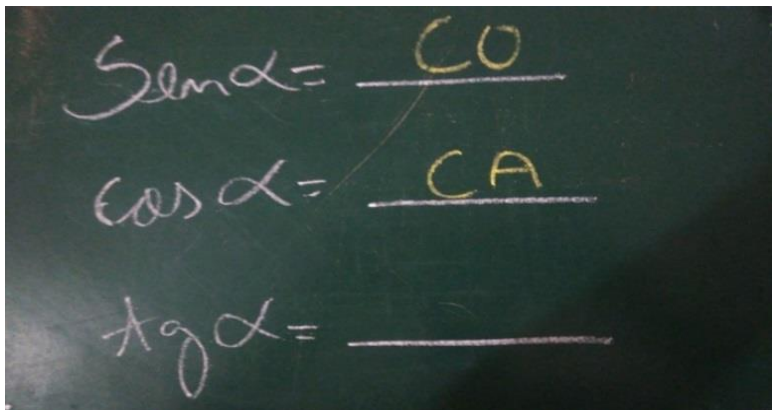 Sen α = CO
cos α = CA
tg α =